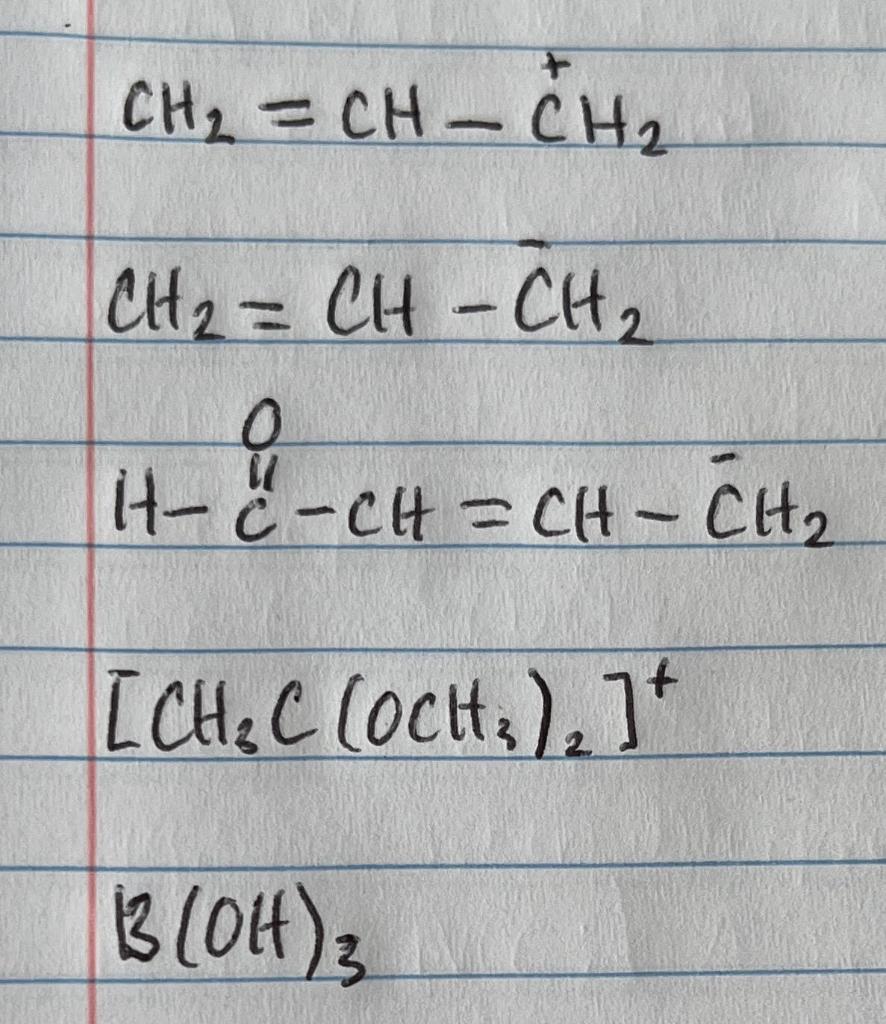 CH₂ = CH – C⁺H₂
CH₂ = CH – C⁻H₂
O
||
H – C – CH = CH – C⁻H₂
[CH₃C(OCH₃)₂]⁺
B(OH)₃